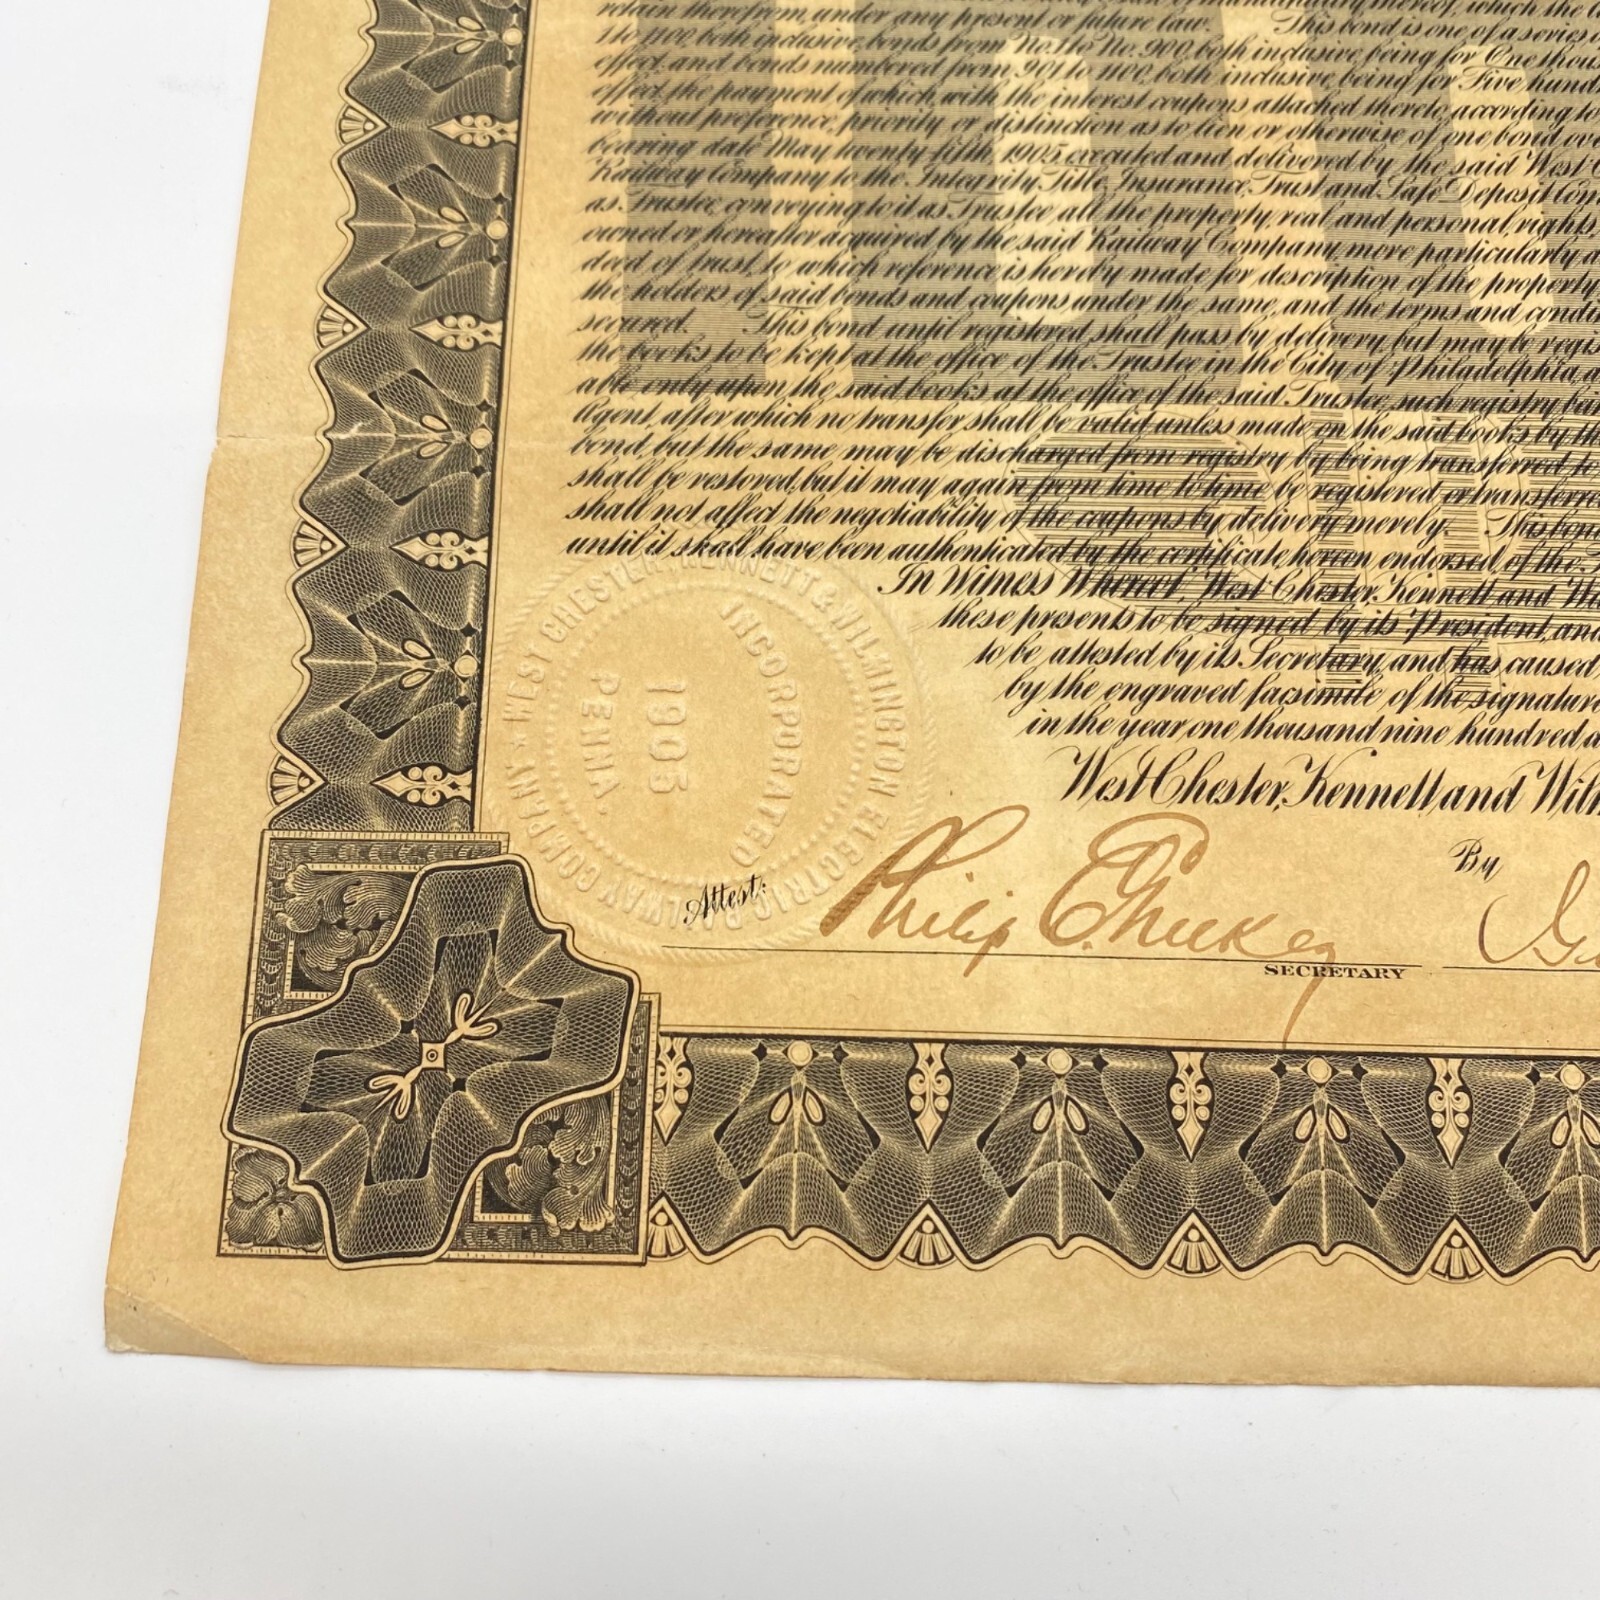 retain therefrom, under any present or future law. This bond is one of a series
1 to 1100, both inclusive, bonds from No. 1 to No. 900, both inclusive being for One thous
effect, and bonds numbered from 901 to 1100, both inclusive, being for Five hund
effect, the payment of which, with the interest coupons attached thereto, according to
without preference, priority or distinction as to lien or otherwise of one bond ov
bearing date May twenty-fifth, 1905, executed and delivered by the said West C
Railway Company to the Integrity Title Insurance, Trust and Safe Deposit Com
as Trustee, conveying to it as Trustee all the property, real and personal, rights,
owned or hereafter acquired by the said Railway Company, more particularly
deed of trust, to which reference is hereby made for description of the property
the holders of said bonds and coupons under the same, and the terms and condi
secured. This bond until registered shall pass by delivery, but may be regis
the books to be kept at the office of the Trustee in the City of Philadelphia, a
able only upon the said books at the office of the said Trustee, such registry bein
Agent, after which no transfer shall be valid unless made on the said books by th
bond, but the same may be discharged from registry by being transferred to
shall be restored, but it may again from time to time be registered or transferre
shall not affect the negotiability of the coupons by delivery merely. This bon
until it shall have been authenticated by the certificate hereon endorsed of the T
In Witness Whereof, West Chester, Kennett and Wil
these presents to be signed by its President, and
to be attested by its Secretary and has caused
by the engraved facsimile of the signature
in the year one thousand nine hundred a
West Chester, Kennett and Wilm
WEST CHESTER, KENNETT & WILMINGTON ELECTRIC RAILWAY COMPANY
INCORPORATED
1905
PENNA.
By
Attest: Philip
SECRETARY